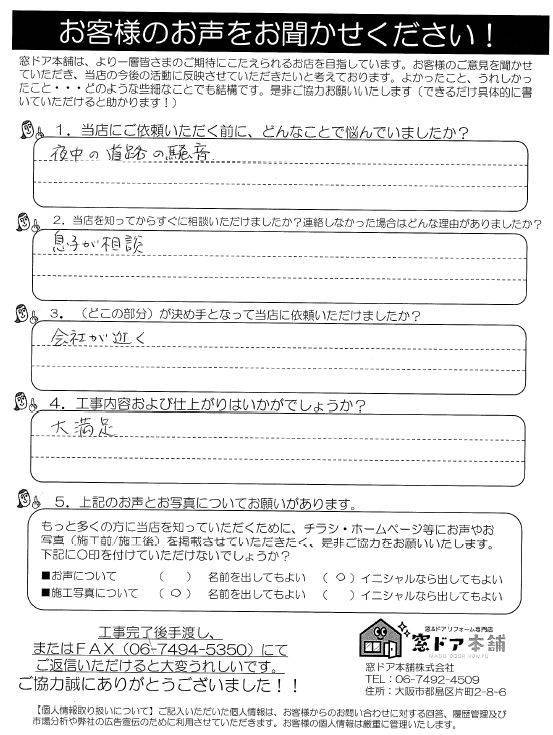 お客様のお声をお聞かせください！
窓ドア本舗は、より一層皆さまのご期待にこたえられるお店を目指しています。お客様のご意見を聞かせ
ていただき、当店の今後の活動に反映させていただきたいと考えております。よかったこと、うれしかっ
たこと・・・どのような些細なことでも結構です。是非ご協力お願いいたします（できるだけ具体的に書
いていただけると助かります！）
１．当店にご依頼いただく前に、どんなことで悩んでいましたか？
夜中の道路の騒音
２．当店を知ってからすぐに相談いただけましたか？連絡しなかった場合はどんな理由がありましたか？
息子が相談
３．（どこの部分）が決め手となって当店に依頼いただけましたか？
会社が近く
４．工事内容および仕上がりはいかがでしょうか？
大満足
５．上記のお声とお写真についてお願いがあります。
もっと多くの方に当店を知っていただくために、チラシ・ホームページ等にお声やお
写真（施工前/施工後）を掲載させていただきたく、是非ご協力をお願いいたします。
下記に〇印を付けていただけないでしょうか？
■お声について （　） 名前を出してもよい （○）イニシャルなら出してもよい
■施工写真について （　） 名前を出してもよい （○）イニシャルなら出してもよい
工事完了後手渡し、
またはＦＡＸ（06-7494-5350）にて
ご返信いただけると大変うれしいです。
ご協力誠にありがとうございました！！
窓&ドアリフォーム専門店
窓ドア本舗
MADO DOOR HONPO
窓ドア本舗株式会社
TEL：06-7492-4509
住所：大阪市都島区片町2-8-6
【個人情報取り扱いについて】ご記入いただいた個人情報は、お客様からのお問い合わせに対する回答、履歴管理及び
市場分析や弊社の広告宣伝のために利用させていただきます。お客様の個人情報は厳重に管理いたします。